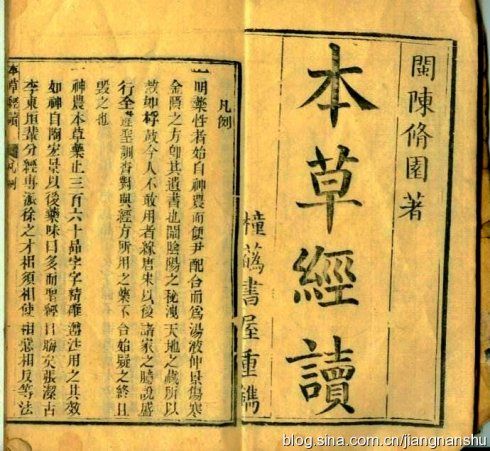 閩陳脩園著
本草經讀
書屋重鐫
凡例
一明藥性者始自神農而伊尹配合而為湯液仲景傷寒
金匱之方即其遺書也闡陰陽之秘洩天地之藏所以
效如桴鼓今人不敢用者緣唐宋以後諸家之臆說盛
行全違聖訓查對與經方所用之藥不合始疑之終且
毀之也
一神農本草藥止三百六十品字字精確遵法用之其效
如神自陶宏景以後藥味日多而聖經日晦矣張潔古
李東垣輩分經專派徐之才相須相使相惡相反等法
本草經讀 凡例
blog.sina.com.cn/jiangnanshu